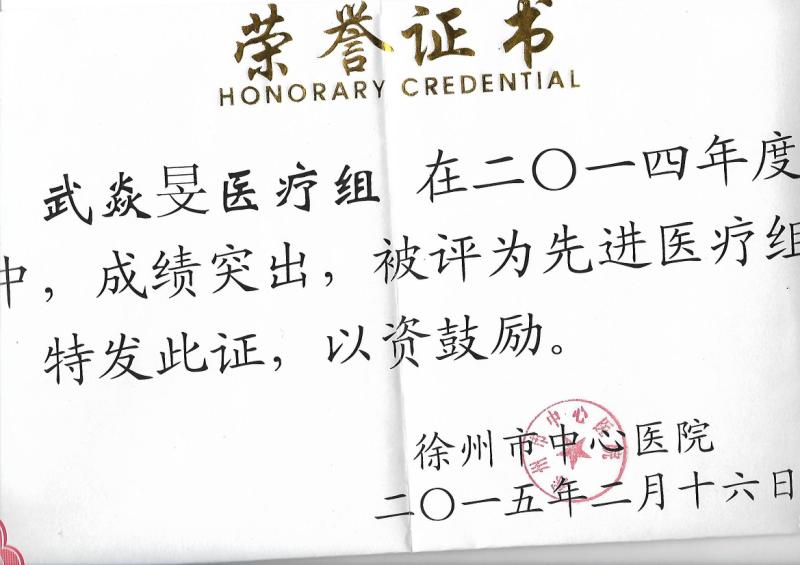 荣誉证书
HONORARY CREDENTIAL
武焱旻医疗组 在二〇一四年度
中，成绩突出，被评为先进医疗组
特发此证，以资鼓励。
徐州市中心医院
徐州市中心医院
二〇一五年二月十六日